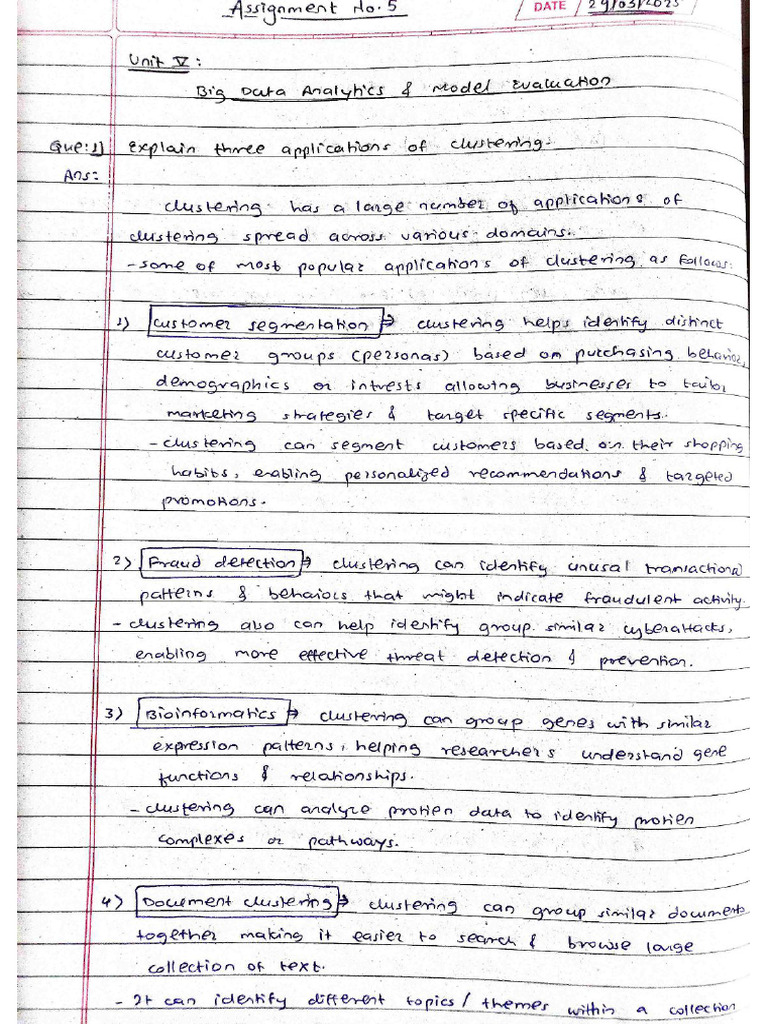 Assignment No. 5
DATE 29/03/2025
Unit V :
Big Data Analytics & Model Evaluation
Que:1) Explain three applications of clustering.
Ans:
clustering has a large number of applications of
clustering spread across various domains.
- some of most popular applications of clustering as follows:
1) Customer segmentation → clustering helps identify distinct
customer groups (personas) based on purchasing behavior,
demographics or intrests allowing businesses to tailor
marketing strategies & target specific segments.
- clustering can segment customers based on their shopping
habits, enabling personalized recommendations & targeted
promotions.
2) Fraud detection → clustering can identify unusal transactional
patterns & behaviors that might indicate fraudulent activity.
- clustering also can help identify group similar cyberattacks,
enabling more effective threat detection & prevention.
3) Bioinformatics → clustering can group genes with similar
expression patterns, helping researchers understand gene
functions & relationships.
- clustering can analyze protien data to identify protien
complexes or pathways.
4) Document clustering → clustering can group similar documents
together making it easier to search & browse large
collection of text.
- It can identify different topics / themes within a collection